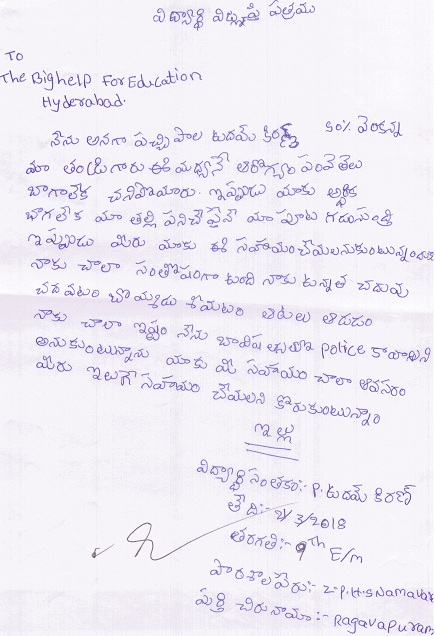 విద్యార్థి విజ్ఞప్తి పత్రము
To
The Bighelp For Education
Hyderabad.
నేను అనగా పచ్చిపాల ఉదయ్ కిరణ్ S0% వెంకన్న
మా తండ్రిగారు ఈ మధ్యనే ఆరోగ్యం
బాగాలేక చనిపోయారు. ఇప్పుడు మాకు ఆర్థిక
బాగలేక మా తల్లి పనిచేస్తేనే మా పూట గడుస్తుంది
ఇప్పుడు మీరు మాకు ఈ సహాయం చేయలనుకుంటున్నందుకు
నాకు చాలా సంతోషంగా ఉంది నాకు ఉన్నత చదువు
చదవటం బొమ్మలు గీయటం ఆటలు ఆడుడం
నాకు చాలా ఇష్టం నేను police కావాలని
అనుకుంటున్నాను మాకు మీ సహాయం చాలా అవసరం
మీరు ఇలాగే సహాయం చేయలని కోరుకుంటున్నాం
ఇట్లు
విద్యార్థి సంతకం:- P. ఉదయ్ కిరణ్
తేది:- 2/3/2018
తరగతి:- 9th E/m
పాఠశాల పేరు:- Z.P.H.S Namavar
పూర్తి చిరునామా:- Ragavapuram